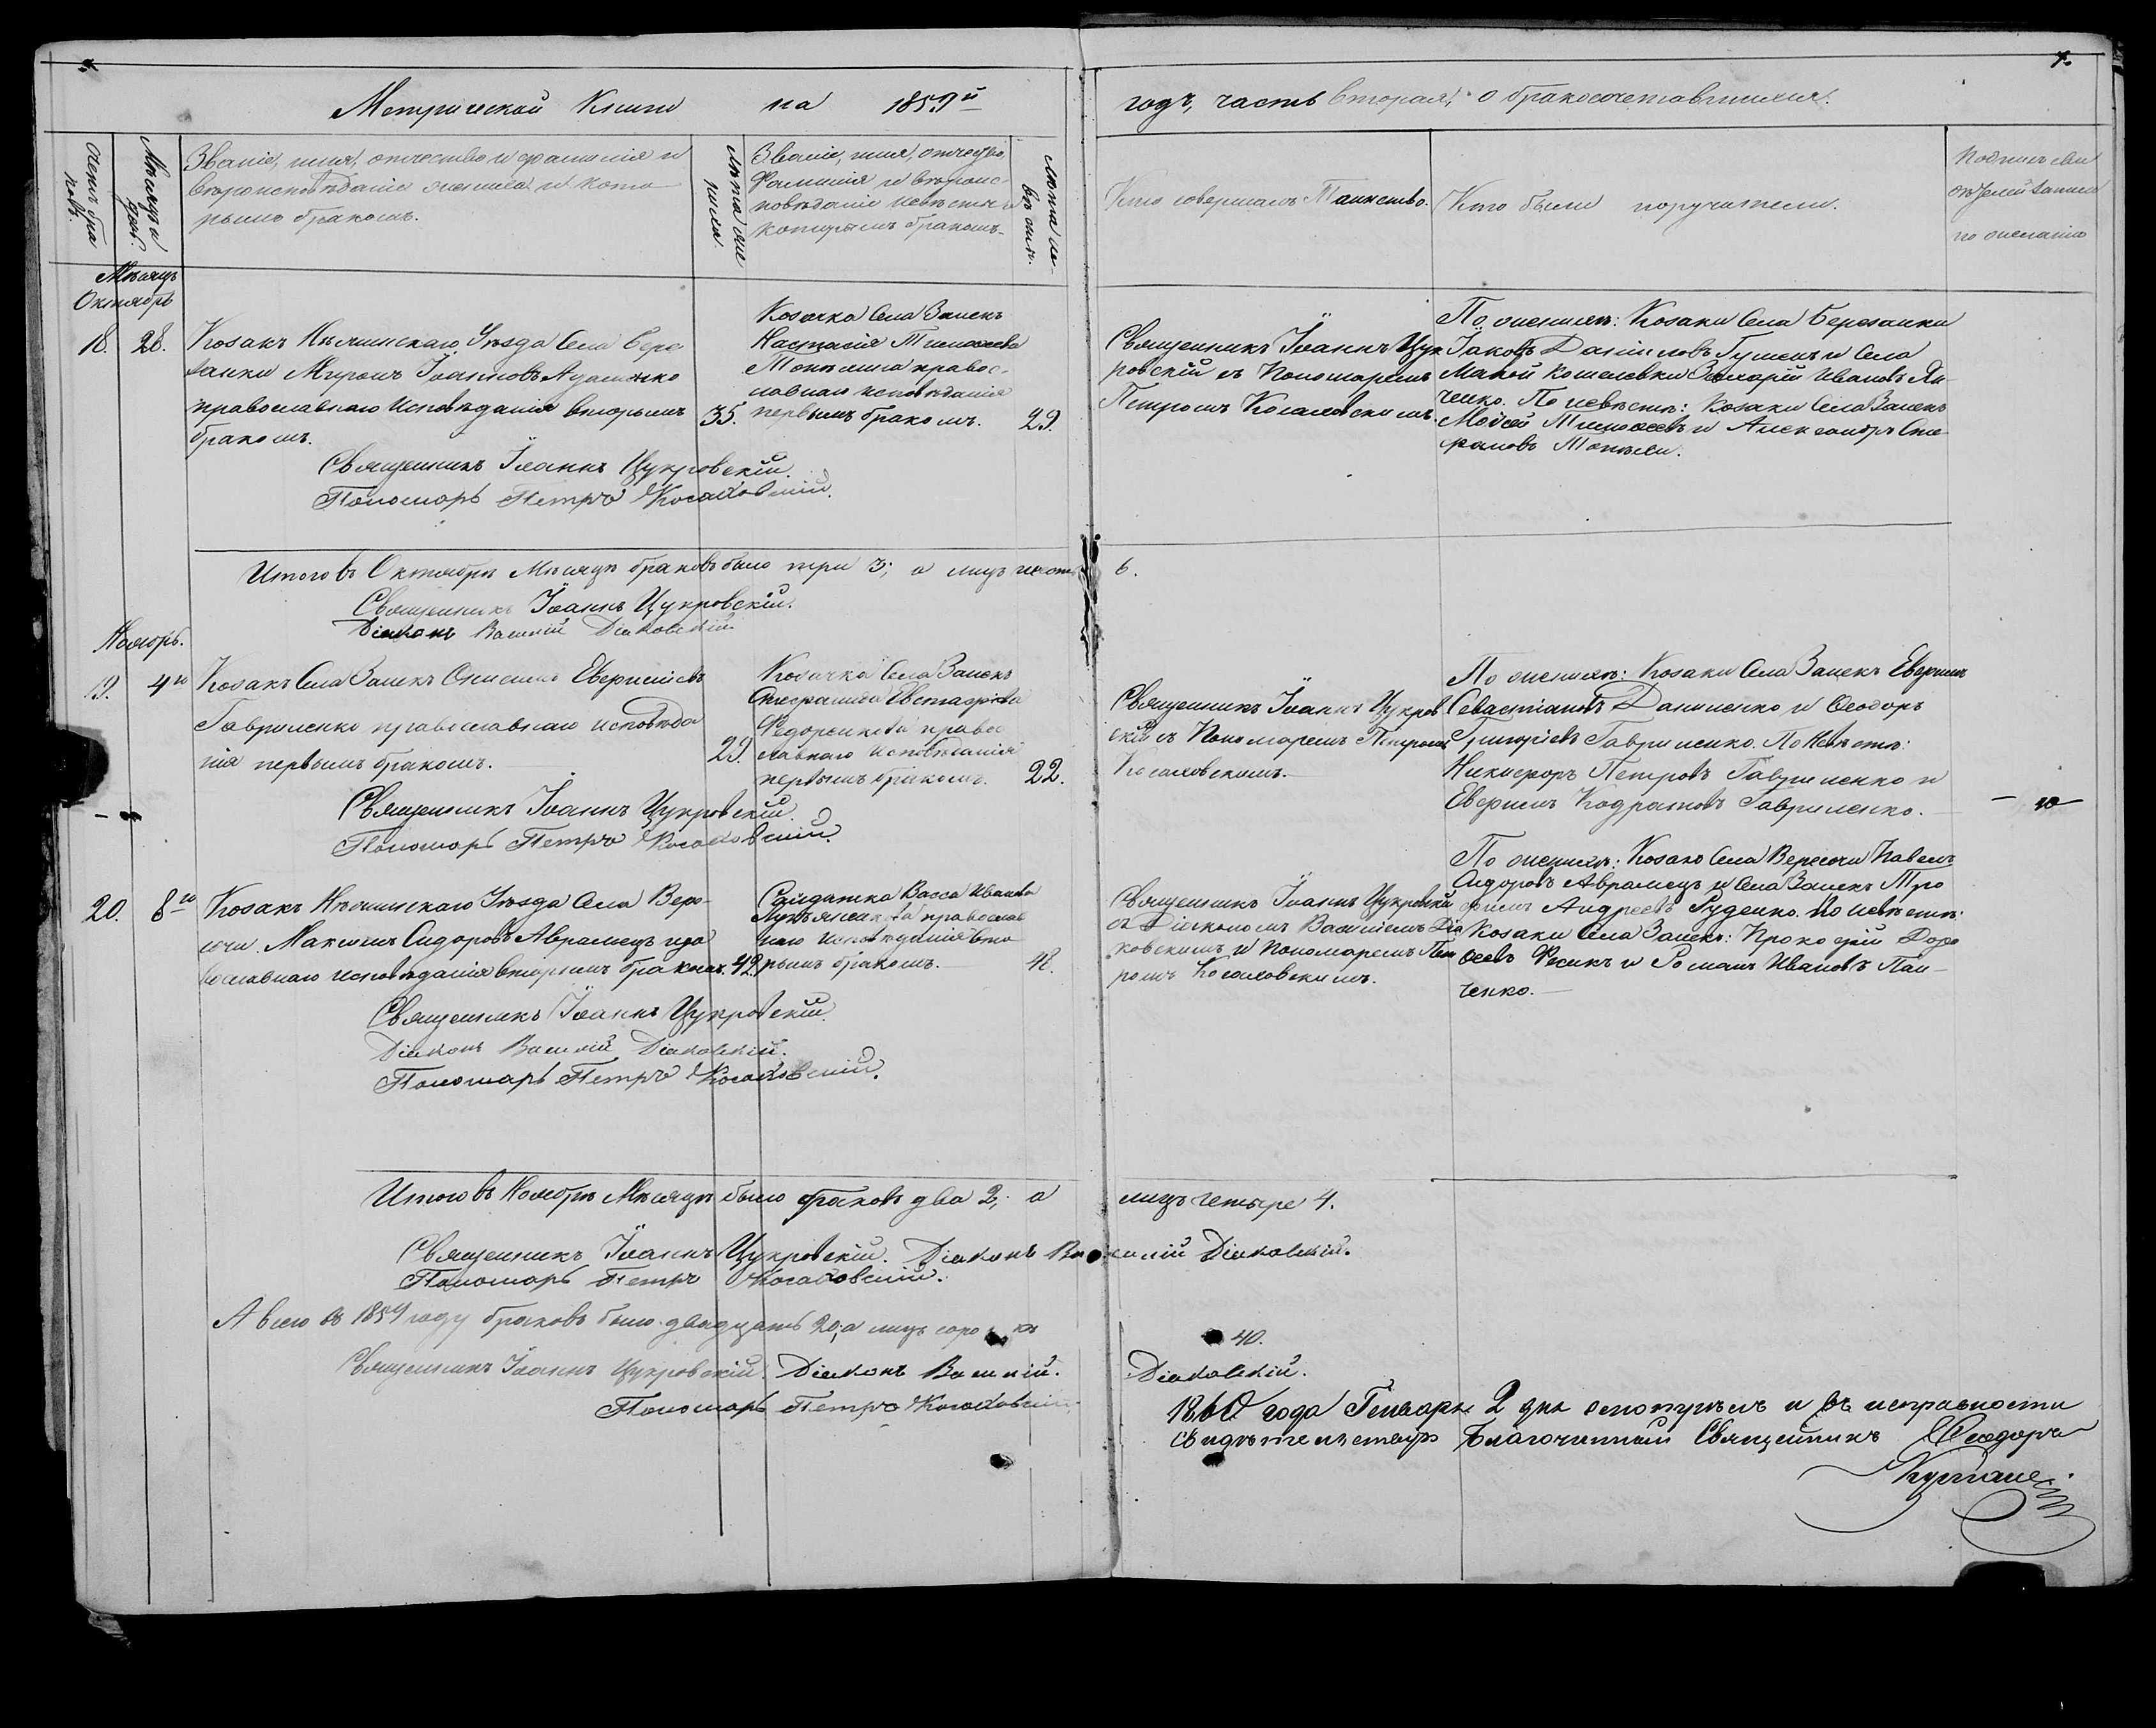 Метрической Книги на 1859й
годъ, часть вторая, о бракосочетавшихся.
Счетъ бра
ковъ.
Мѣсяцъ и
день.
Званіе, имя, отчество и фамилія и
вѣроисповѣданіе жениха и кото
рымъ бракомъ.
Лѣта же
ниха.
Званіе, имя, отчество,
Фамилія и вѣроис-
повѣданіе невѣсты и
которымъ бракомъ.
Лѣта не-
вѣсты.
Кто совершалъ Таинство.
Кто были поручители.
Подпись сви
дѣтелей записи
по желанію
Мѣсяцъ
Октябрь
18. 28.
Козакъ Нѣжинскаго Уѣзда Села Бере
занки Миронъ Іоанновъ Адаменко
православнаго Исповѣданія вторымъ
бракомъ.
35.
Козачка Села Заньк
Настасія Тимофеева
православ-
наго исповѣданія
первымъ бракомъ.
29.
Священникъ Іоаннъ Цук
ровскій съ Пономаремъ
Петромъ Косаковскимъ.
По женихѣ: Козаки Села Березанки
Іаковъ Даниловъ Гуменъ и Села
Малой Кошелевки Захарій Ивановъ Ян-
ченко. По невѣстѣ: Козаки Села Заньк
Мойсей Тимофеевъ и Александръ Сте
фановъ
Священникъ Іоаннъ Цукровскій.
Пономарь Петръ Косаковскій.
Итого въ Октябрѣ Мѣсяцѣ браковъ было три 3; а лицъ шесть 6.
Священникъ Іоаннъ Цукровскій.
Діаконъ Василій Діаковскій
Ноябрь.
19. 4го
Козакъ Села Заньк Онисимъ Евфиміевъ
Гавриленко православнаго исповѣда
нія первымъ бракомъ.
29.
Козачка Села Заньк
Стефанида Евстафіева
Федоренкова правос
лавнаго исповѣданія
первымъ бракомъ.
22.
Священникъ Іоаннъ Цукров
скій съ Пономаремъ Петромъ
Косаковскимъ.
По женихѣ: Козаки Села Заньк Евфимъ
Севастіановъ Даниленко и Ѳеодоръ
Григоріевъ Гавриленко. По Невѣстѣ:
Никифоръ Петровъ Гавриленко и
Евфимъ Кодратовъ Гавриленко.
Священникъ Іоаннъ Цукровскій.
Пономарь Петръ Косаковскій.
20. 8го
Козакъ Нѣжинскаго Уѣзда Села Вере-
сочи Максимъ Сидоровъ Аврамецъ пра
вославнаго исповѣданія вторымъ бракомъ.
42.
Солдатка Васса Иванова
Лукьяненкова православ
наго исповѣданія вто
рымъ бракомъ.
Священникъ Іоаннъ Цукровскій
съ Діакономъ Василіемъ Діа
ковскимъ и Пономаремъ Пет
ромъ Косаковскимъ.
По женихѣ: Козаки Села Вересочи Павелъ
Сидоровъ Аврамецъ и Села Заньк Тро
фимъ Андреевъ Руденко. По невѣстѣ:
Козаки Села Заньк: Прокофій Доро
феевъ Фесикъ и Романъ Ивановъ Пан-
ченко.
Священникъ Іоаннъ Цукровскій.
Діаконъ Василій Діаковскій.
Пономарь Петръ Косаковскій.
Итого въ Ноябрѣ Мѣсяцѣ было браковъ два 2; а лицъ четыре 4.
Священникъ Іоаннъ Цукровскій. Діаконъ Василій Діаковскій.
Пономарь Петръ Косаковскій.
А всего въ 1859 году браковъ было двадцать 20; а лицъ сорокъ 40.
Священникъ Іоаннъ Цукровскій. Діаконъ Василій. Діаковскій.
Пономарь Петръ Косаковскій.
1860 года Генваря 2 дня смотрѣлъ и въ исправности
свидѣтельствую Благочинный Священникъ Ѳеодоръ